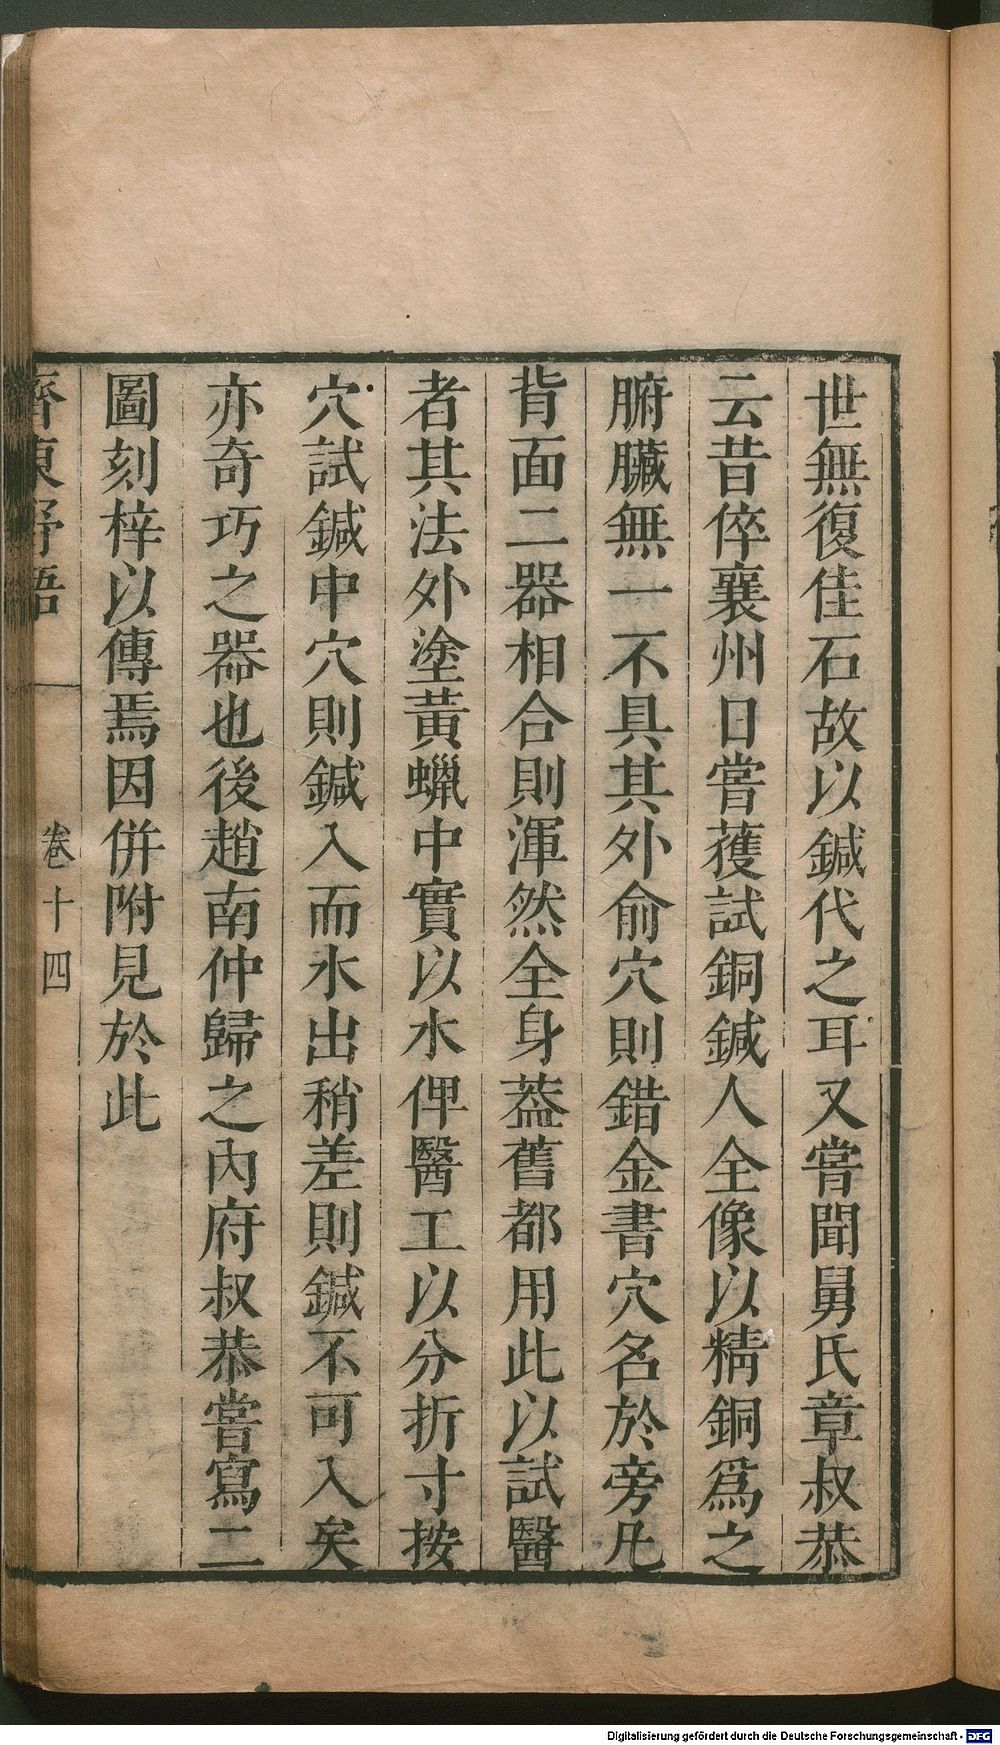 世無復佳石故以鍼代之耳又嘗聞舅氏章叔恭
云昔倅襄州日嘗獲試銅鍼人全像以精銅爲之
腑臟無一不具其外俞穴則錯金書穴名於旁凡
背面二器相合則渾然全身葢舊都用此以試醫
者其法外塗黃蠟中實以水俾醫工以分折寸按
穴試鍼中穴則鍼入而水出稍差則鍼不可入矣
亦奇巧之器也後趙南仲歸之內府叔恭嘗寫二
圖刻梓以傳焉因併附見於此
齊東野語
卷十四
Digitalisierung gefördert durch die Deutsche Forschungsgemeinschaft - DFG